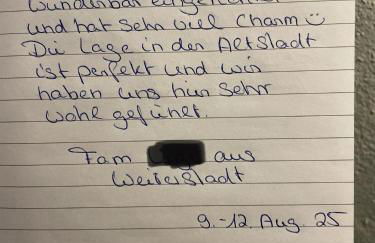 wunderbar
und hat sehr viel Charm ☺
Die Lage in der Altstadt
ist perfekt und wir
haben uns hier sehr
wohl gefühlt.
Fam aus
Weiterstadt
9.-12. Aug. 25